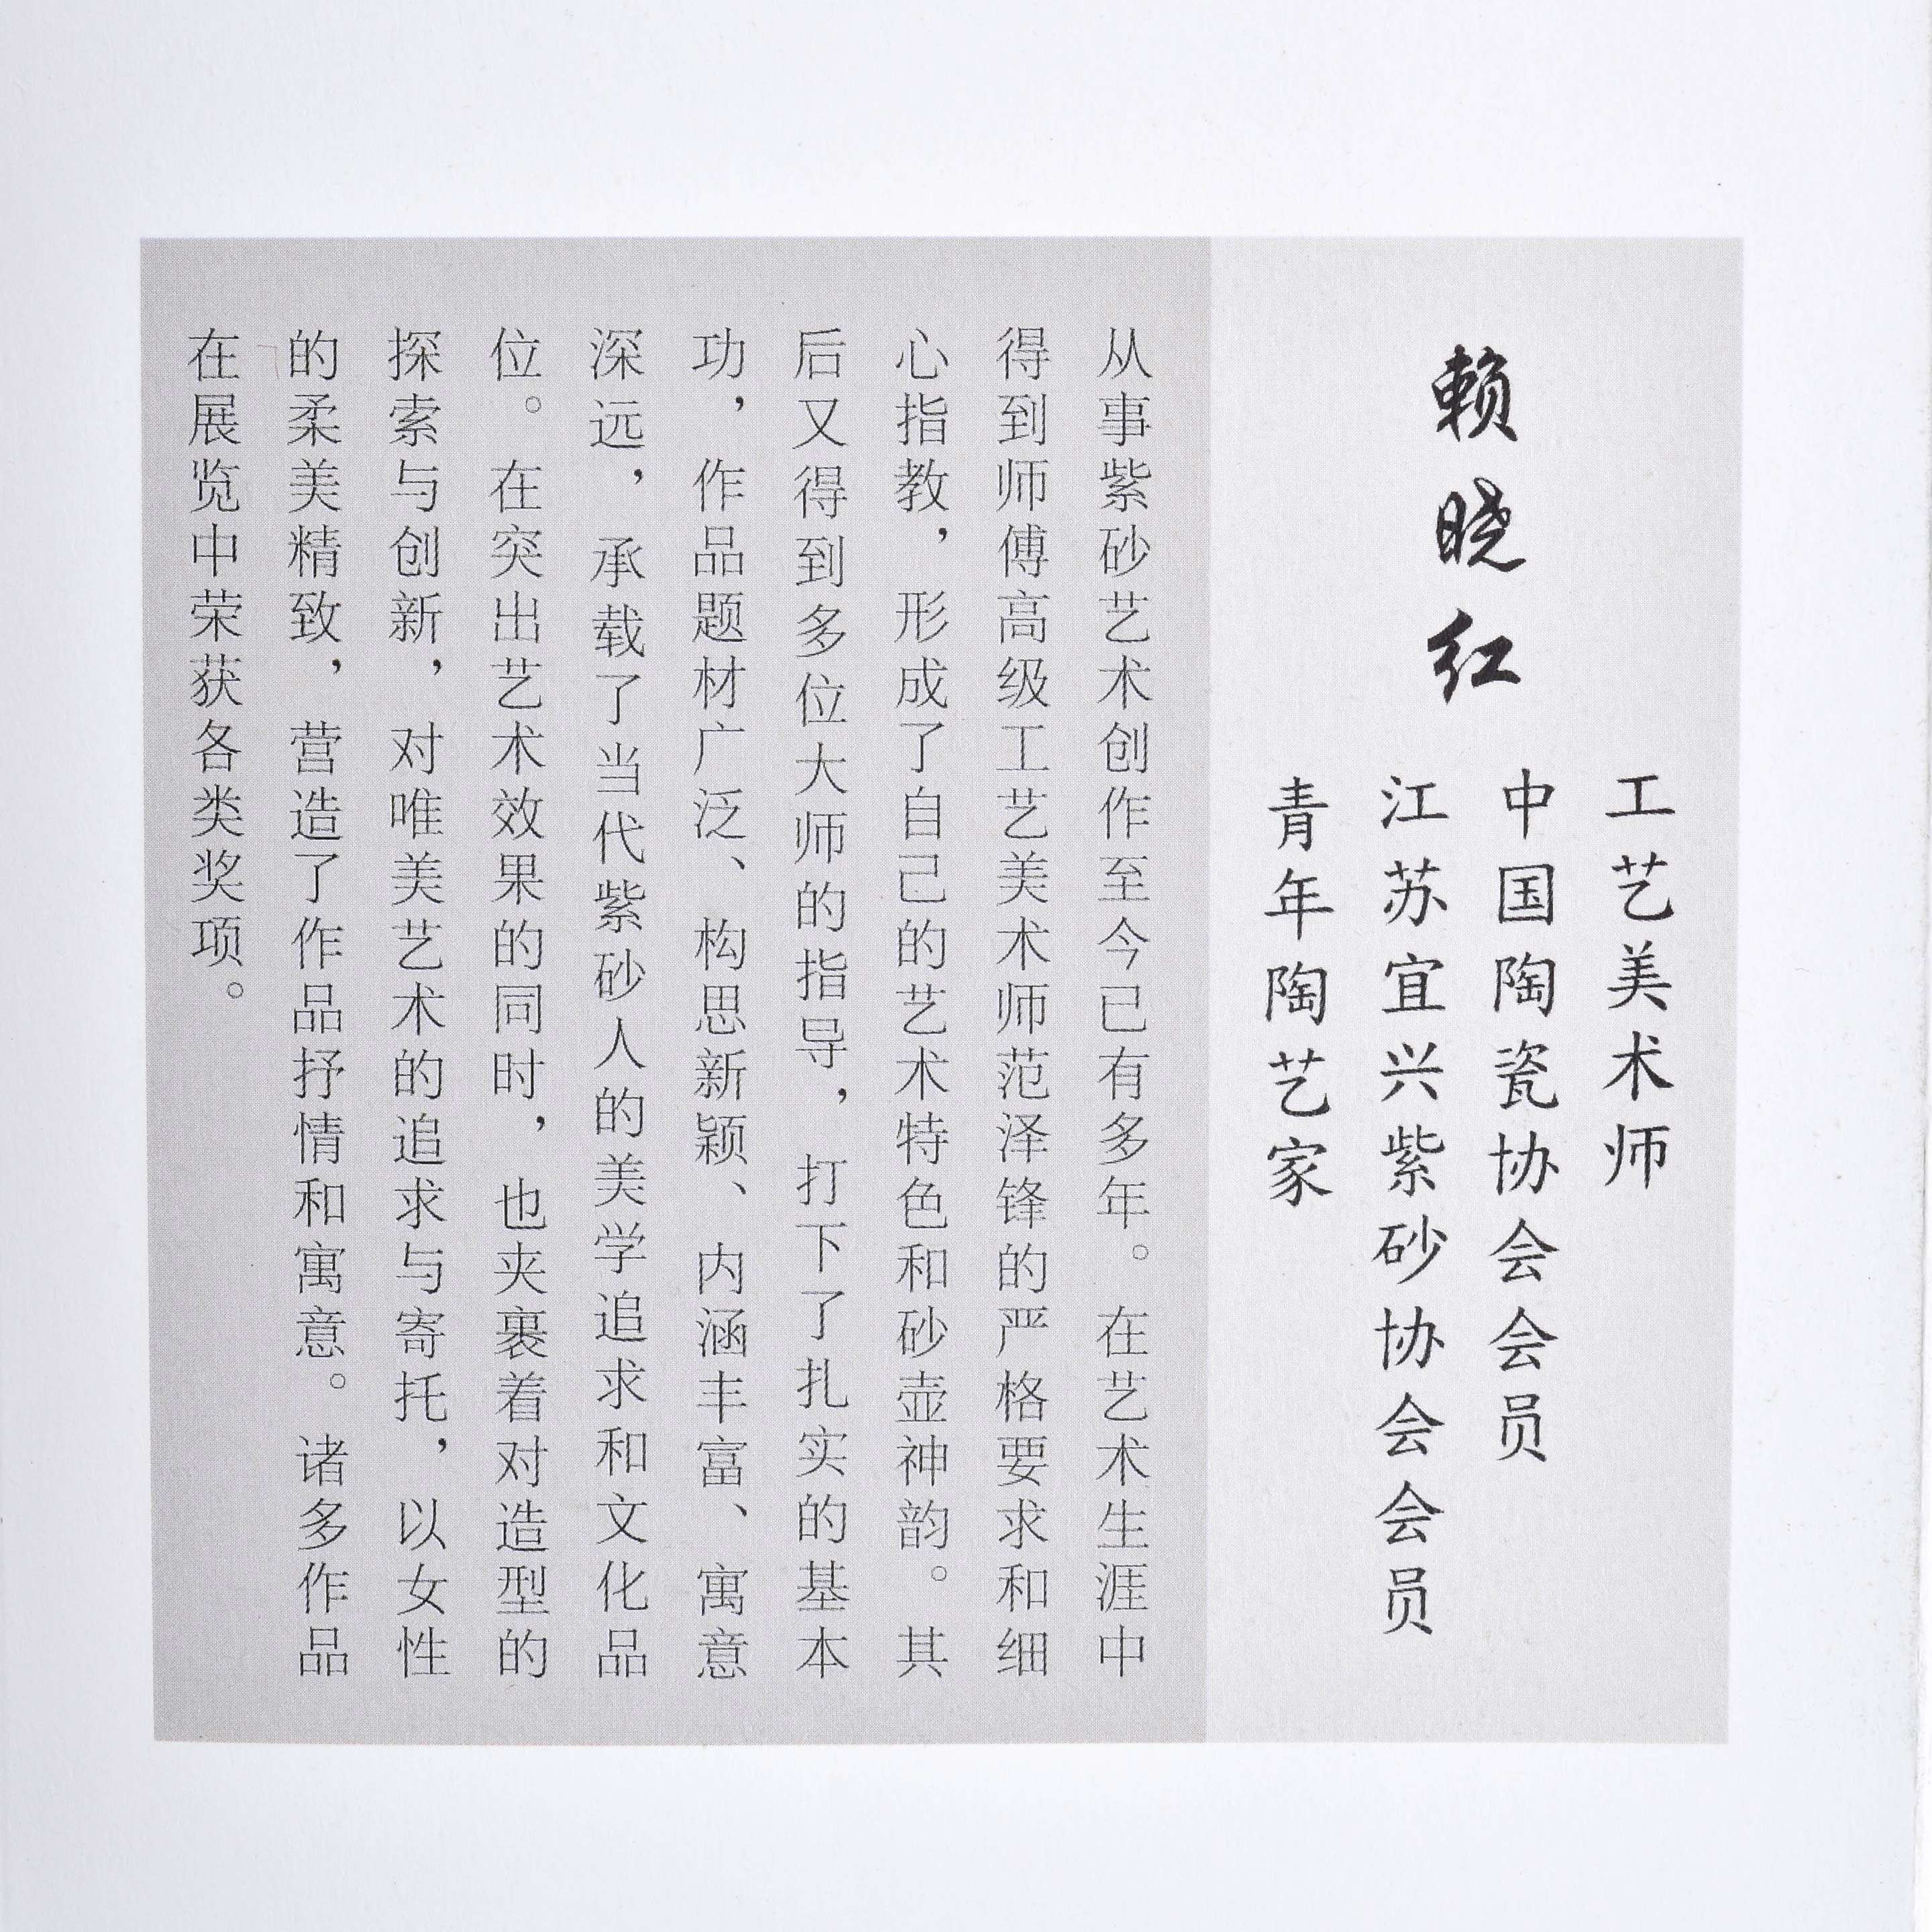 工艺美术师
中国陶瓷协会会员
江苏宜兴紫砂协会会员
青年陶艺家
赖晓红
从事紫砂艺术创作至今已有多年。在艺术生涯中
得到师傅高级工艺美术师范泽锋的严格要求和细
心指教，形成了自己的艺术特色和砂壶神韵。其
后又得到多位大师的指导，打下了扎实的基本
功，作品题材广泛、构思新颖、内涵丰富、寓意
深远，承载了当代紫砂人的美学追求和文化品
位。在突出艺术效果的同时，也夹裹着对造型的
探索与创新，对唯美艺术的追求与寄托，以女性
的柔美精致，营造了作品抒情和寓意。诸多作品
在展览中荣获各类奖项。